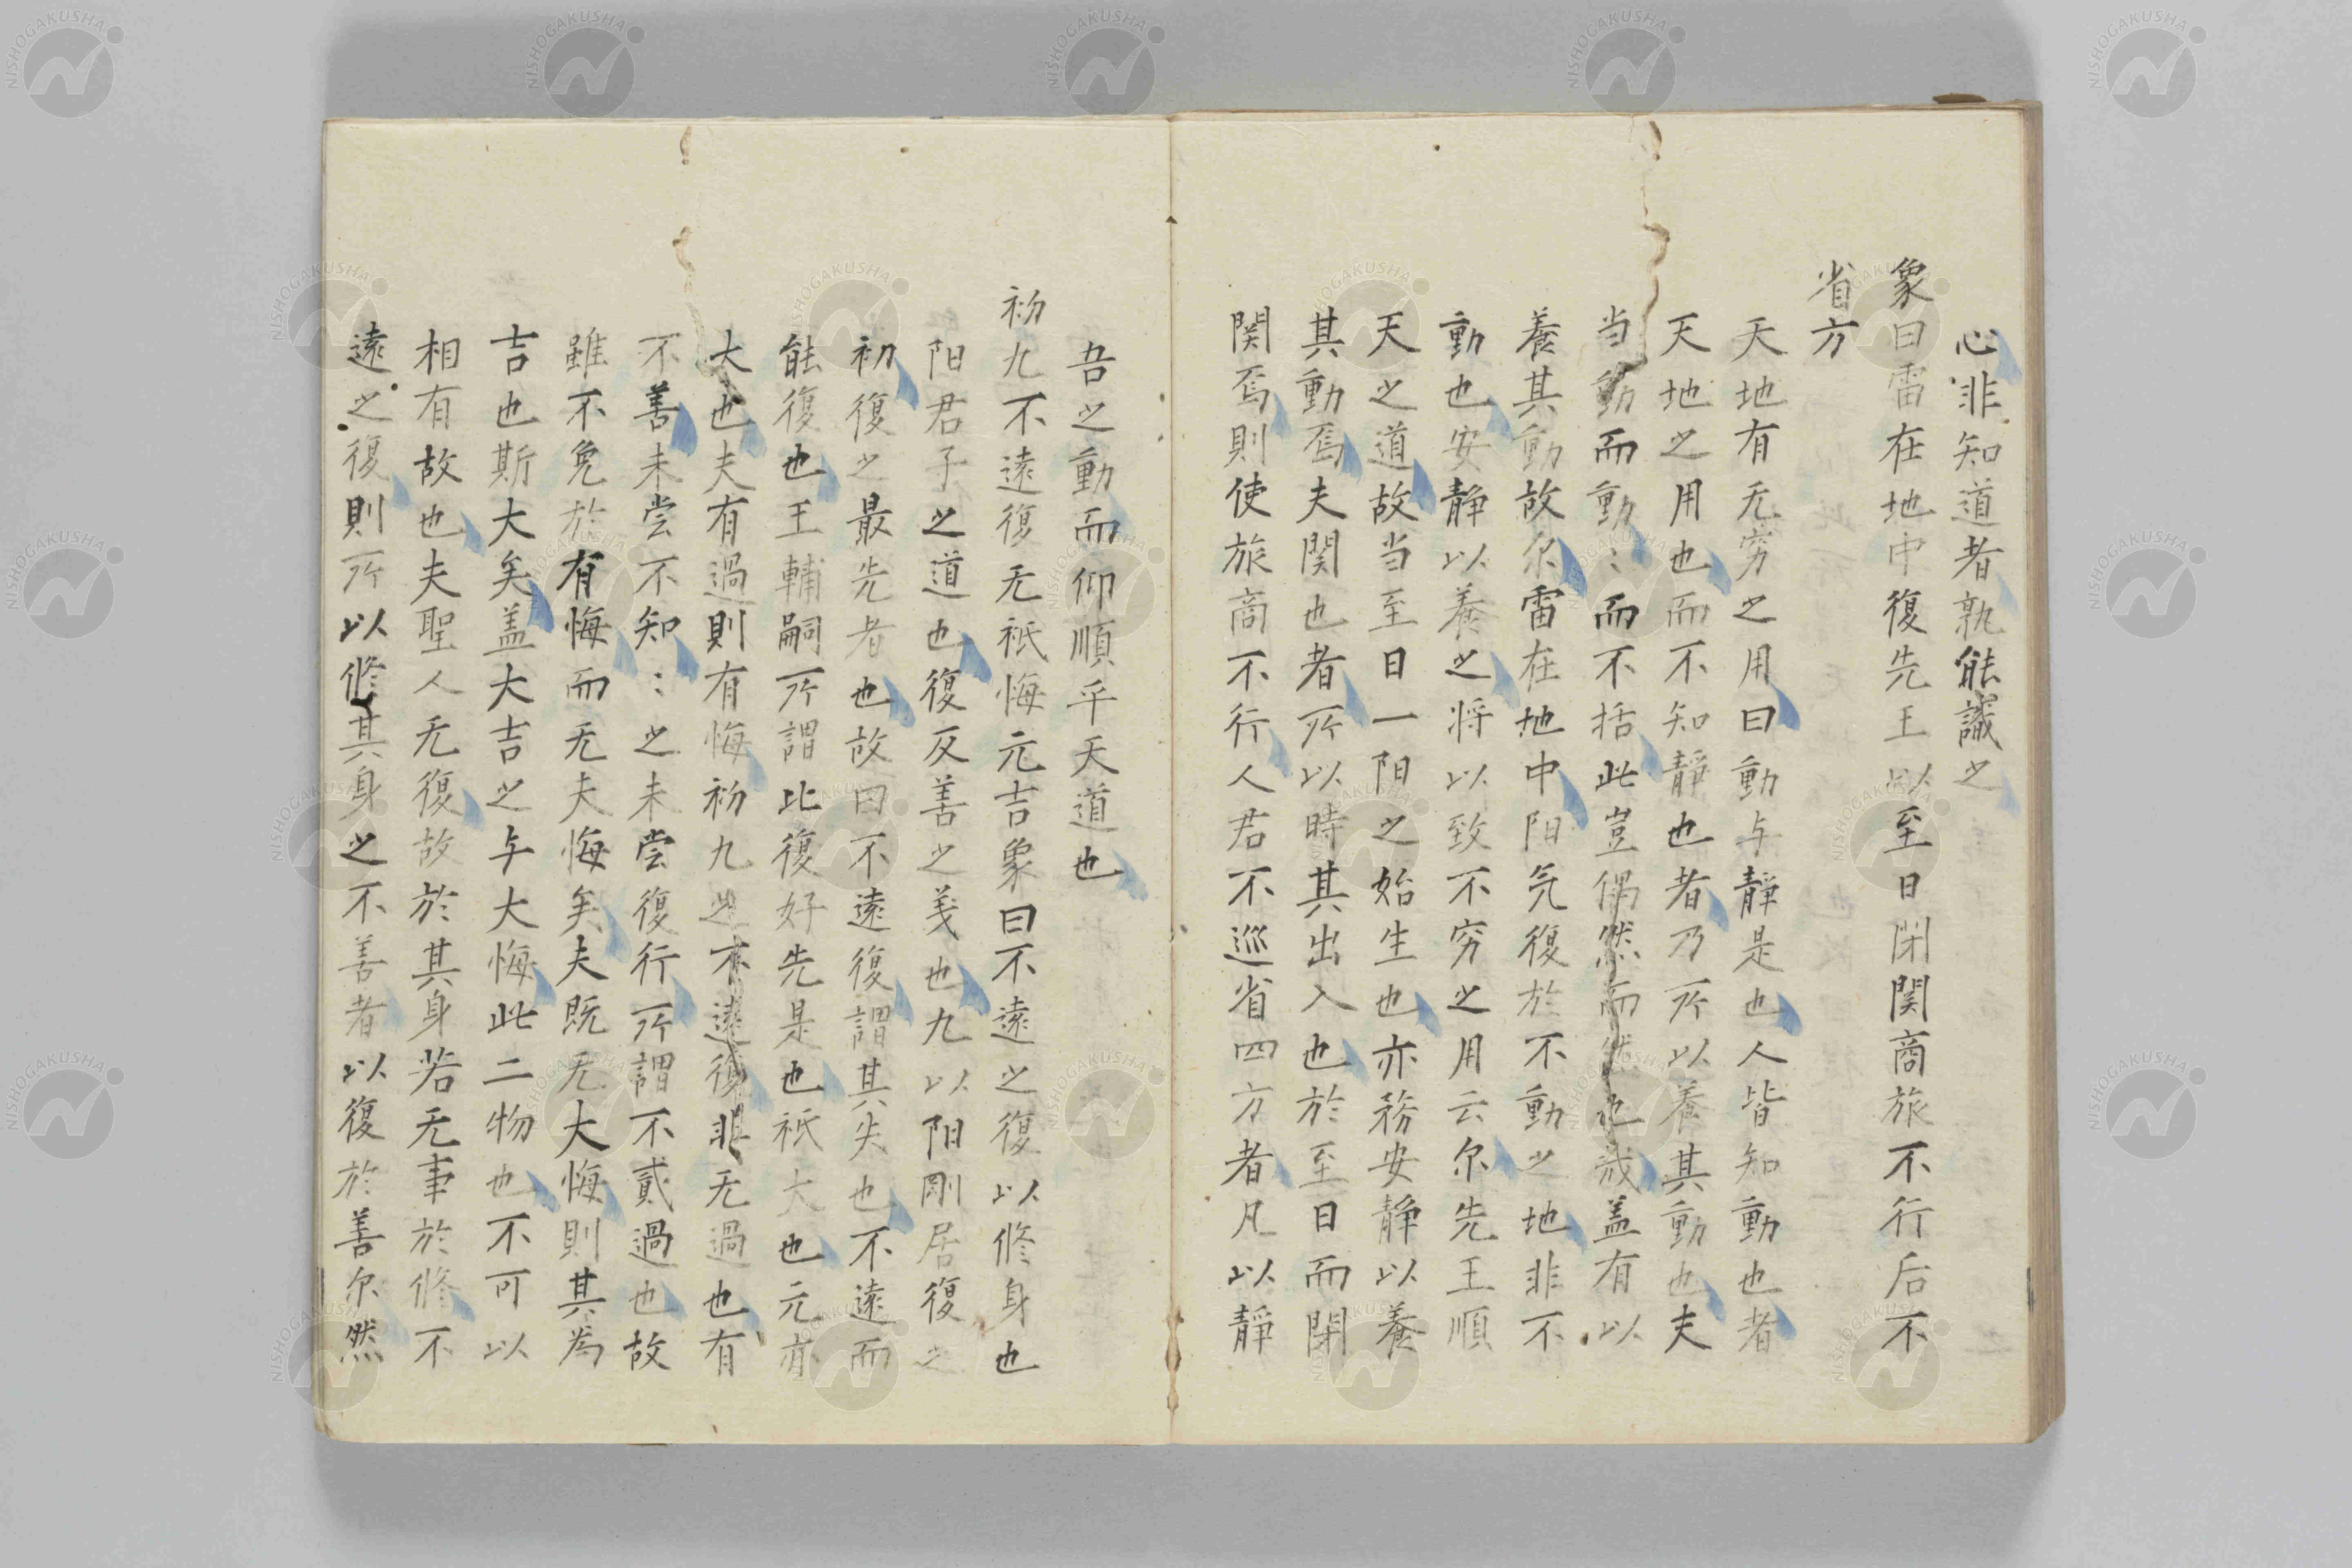 心非知道者孰能識之
象曰雷在地中復先王以至日閉関商旅不行后不
省方
天地有无穷之用曰動与静是也人皆知動也者
天地之用也而不知静也者乃所以養其動也夫
当動而動〻而不括此豈偶然而然也㦲盖有以
養其動故尓雷在地中阳気復於不動之地非不
動也安静以養之将以致不穷之用云尓先王順
天之道故当至日一阳之始生也亦務安静以養
其動焉夫関也者所以時其出入也於至日而閉
関焉則使旅商不行人君不巡省四方者凡以静
吾之動而仰順乎天道也
初九不遠復无祇悔元吉象曰不遠之復以修身也
阳君子之道也復反善之義也九以阳剛居復之
初復之最先者也故曰不遠復謂其失也不遠而
能復也王輔嗣所謂比復好先是也祇大也元亦
大也夫有過則有悔初九之不遠復非无過也有
不善未尝不知〻之未尝復行所謂不貳過也故
雖不免於有悔而无夫悔矣夫既无大悔則其為
吉也斯大矣盖大吉之与大悔此二物也不可以
相有故也夫聖人无復故於其身若无事於修不
遠之復則所以修其身之不善者以復於善尓然